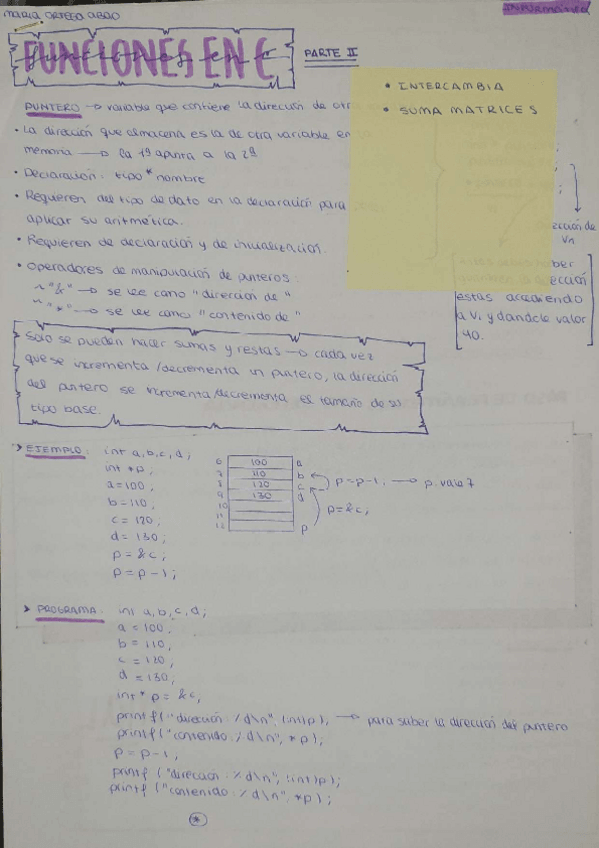 MARIA ORTEGA ABAD
INFORMÁTICA
FUNCIONES EN C
PARTE II
• INTERCAMBIA
• SUMA MATRICES
PUNTERO → variable que contiene la dirección de otr
• La dirección que almacena es la de otra variable en
memoria → la 1ª apunta a la 2ª
• Declaración: tipo * nombre
• Requieren del tipo de dato en la declaración para
aplicar su aritmética.
• Requieren de declaración y de inicialización.
• Operadores de manipulación de punteros.
~ "&" → se lee como "dirección de"
~ "*" → se lee como "contenido de"
;
;
ección de
Vn
ber
ección
estás accediendo
a V, y dándole valor
40.
Solo se pueden hacer sumas y restas → cada vez
que se incrementa/decrementa un puntero, la dirección
del puntero se incrementa/decrementa el tamaño de su
tipo base.
> EJEMPLO: int a,b,c,d;
int *p;
a=100;
b=110;
c=120;
d=130;
p=&c;
p=p-1;
6 100 a
7 110 b
8 120 c
9 130 d
10
11
12 p
p=p-1; → p vale 7
p=&c;
> PROGRAMA: int a,b,c,d;
a = 100;
b = 110;
c = 120;
d = 130;
int * p = &c;
printf("dirección: %d\n", (int)p); → para saber la dirección del puntero
printf("contenido: %d\n", *p);
p = p-1;
printf("dirección: %d\n", (int)p);
printf("contenido: %d\n", *p);
*